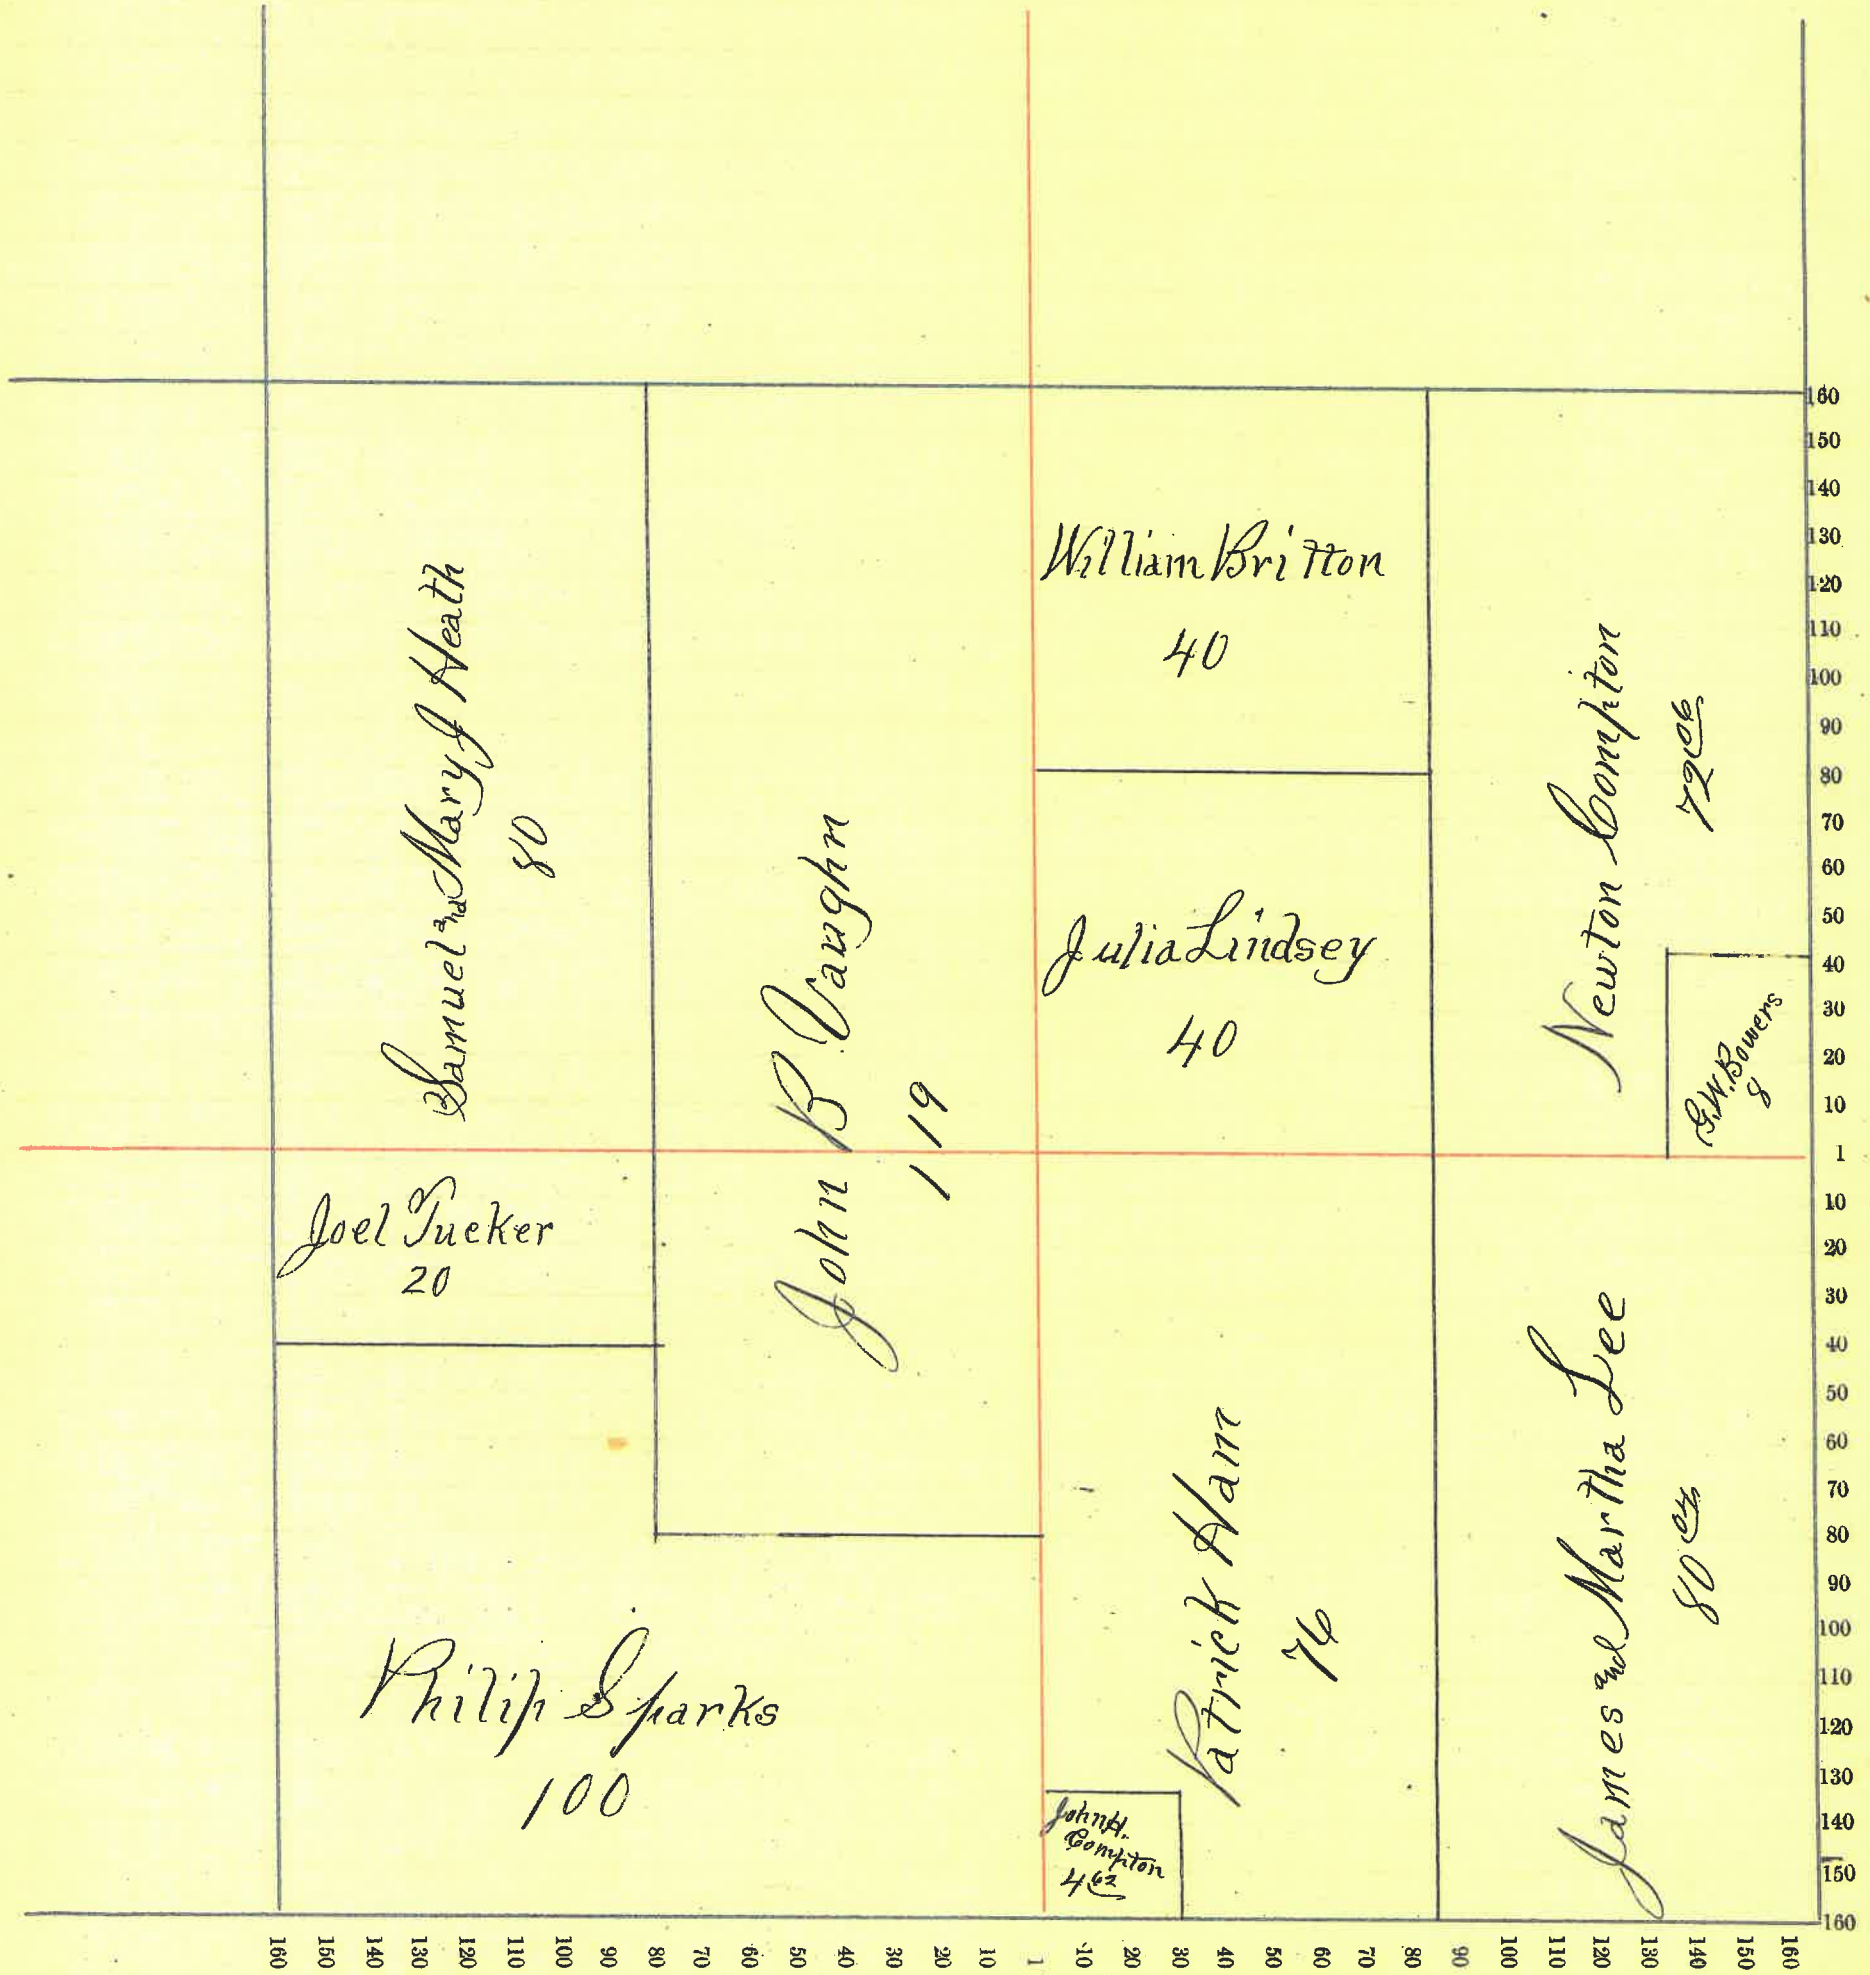 Samuel and Mary J Heath
80
John B. Vaughn
119
William Britton
40
Julia Lindsey
40
Newton Compton
72 06
G.W. Bowers
8
Joel Tucker
20
Philip Sparks
100
Patrick Ham
76
John H.
Compton
4 62
James and Martha Lee
80 04
160
150
140
130
120
110
100
90
80
70
60
50
40
30
20
10
1
10
20
30
40
50
60
70
80
90
100
110
120
130
140
150
160
160 150 140 130 120 110 100 90 80 70 60 50 40 30 20 10 1 10 20 30 40 50 60 70 80 90 100 110 120 130 140 150 160